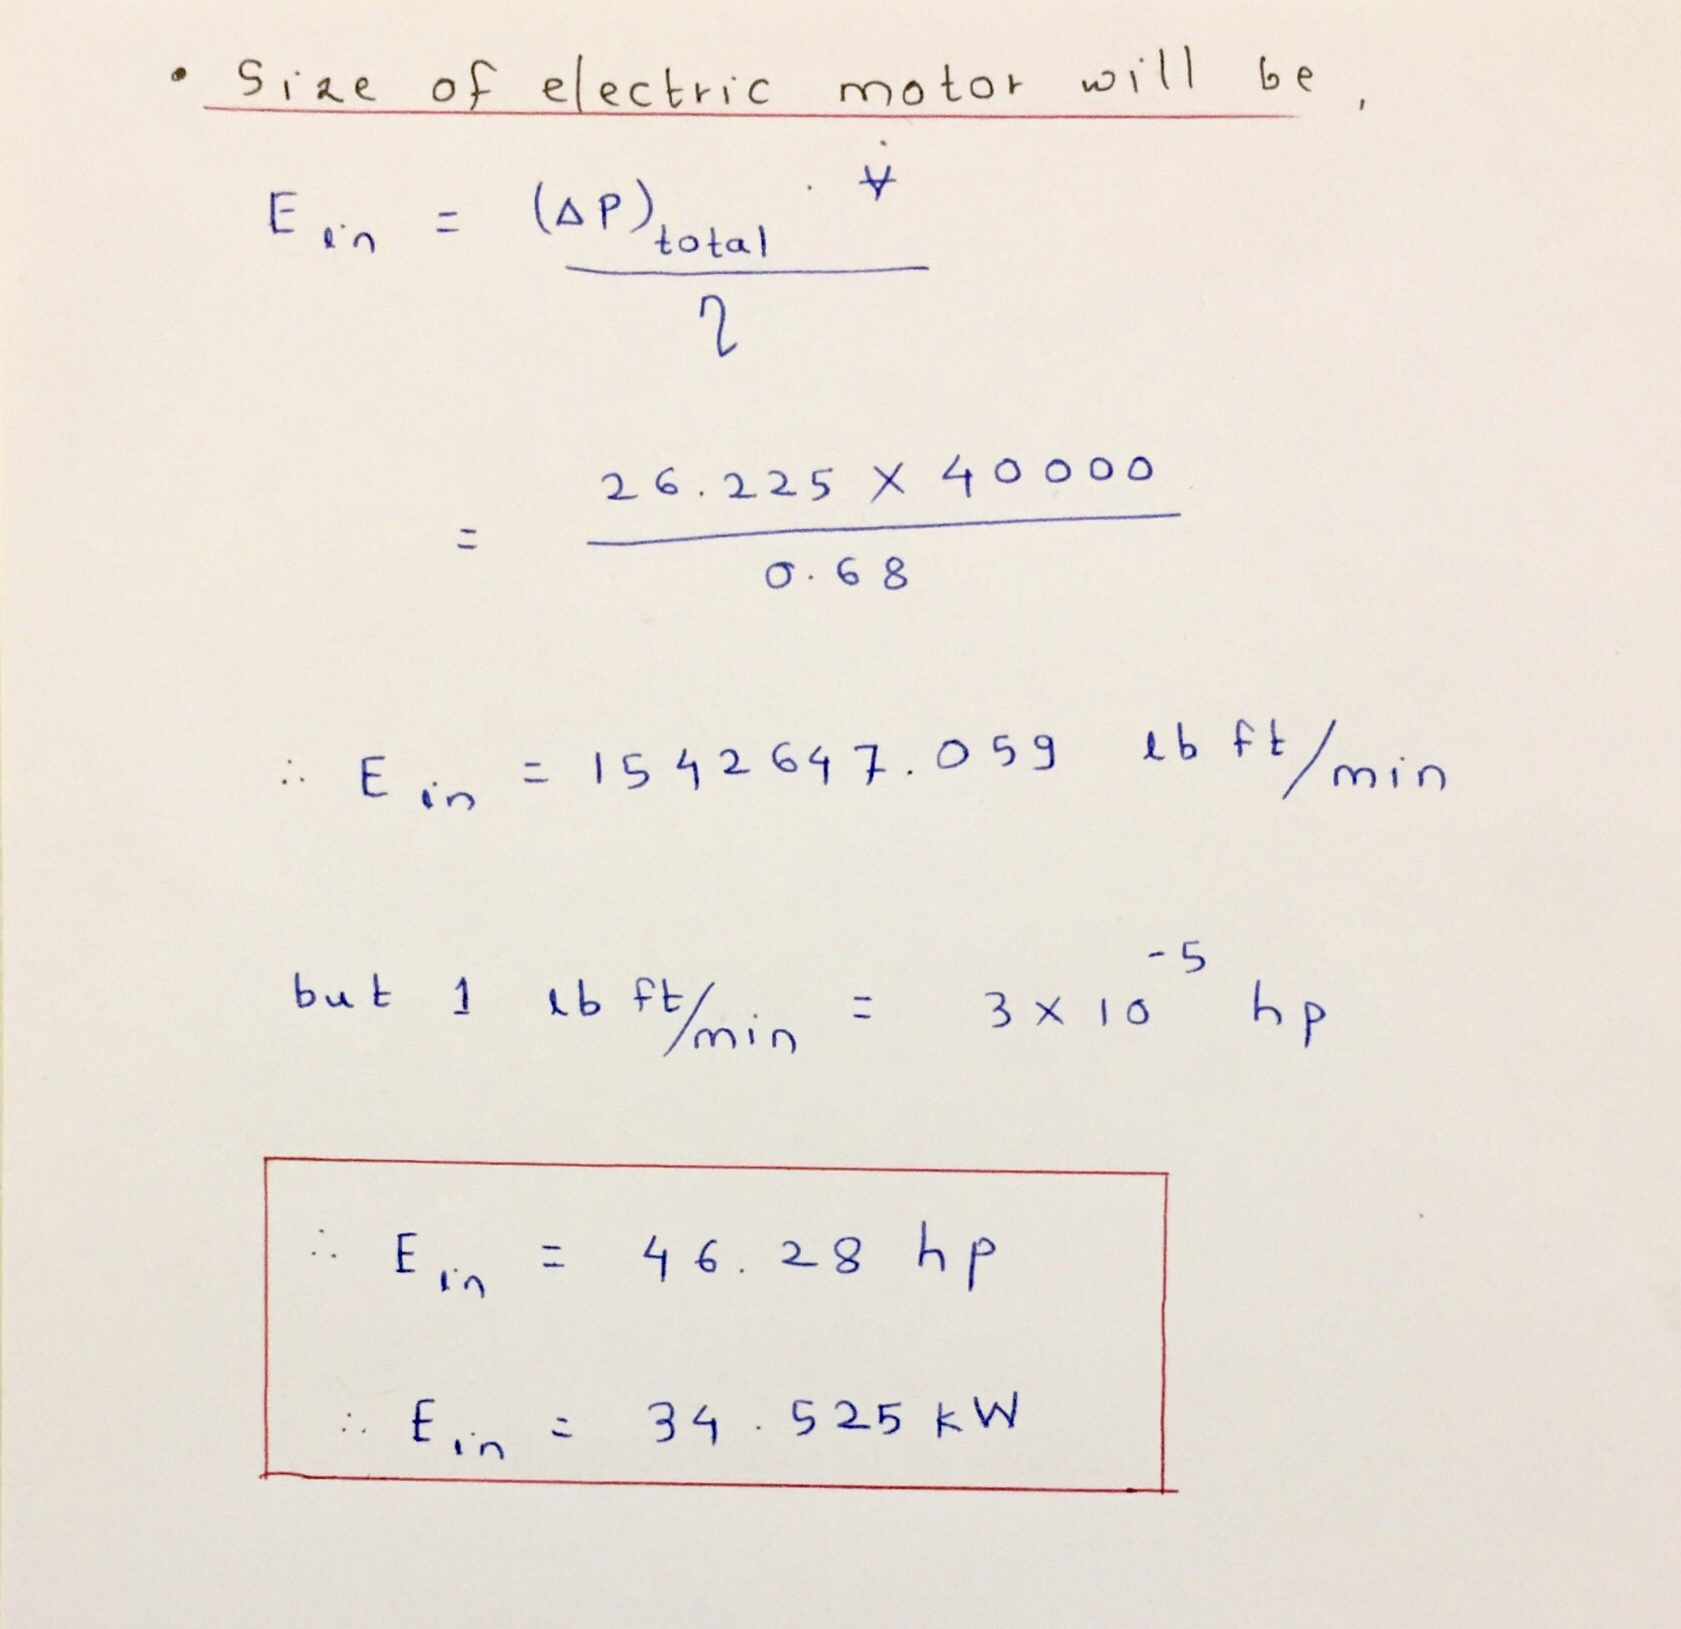 • Size of electric motor will be,
E in = (ΔP)total · V̇
η
= 26.225 × 40000
0.68
∴ E in = 1542647.059 lb ft/min
but 1 lb ft/min = 3 × 10⁻⁵ hp
∴ E in = 46.28 hp
∴ E in = 34.525 kW